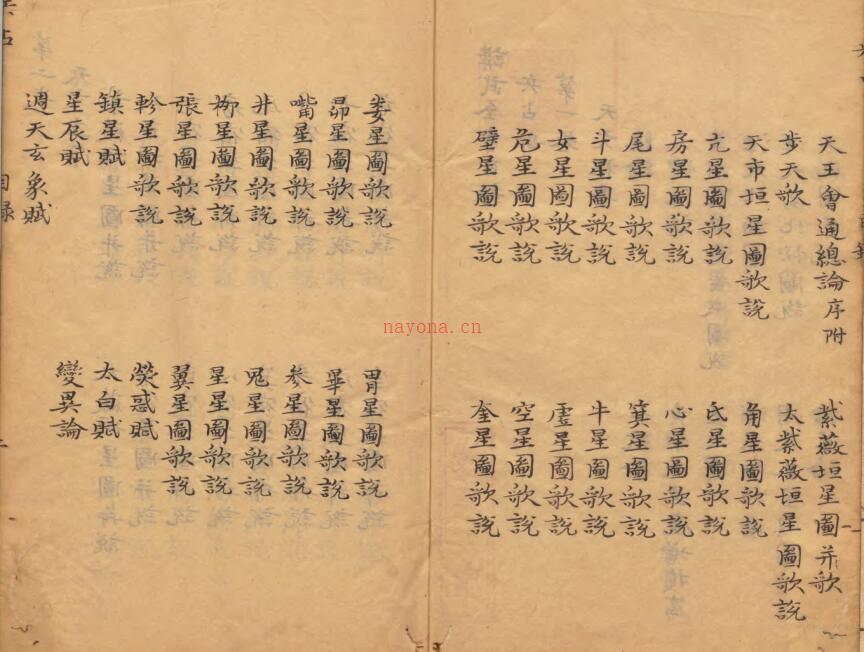 天王會通總論序附 紫薇垣星圖并歌
步天歌 太紫薇垣星圖歌說
天市垣星圖歌說 角星圖歌說
亢星圖歌說 氐星圖歌說
房星圖歌說 心星圖歌說
尾星圖歌說 箕星圖歌說
斗星圖歌說 牛星圖歌說
女星圖歌說 虛星圖歌說
危星圖歌說 空星圖歌說
壁星圖歌說 奎星圖歌說
婁星圖歌說 胃星圖歌說
昴星圖歌說 畢星圖歌說
嘴星圖歌說 参星圖歌說
井星圖歌說 鬼星圖歌說
柳星圖歌說 星星圖歌說
張星圖歌說 翼星圖歌說
軫星圖歌說 熒惑賦
鎮星賦 太白賦
星辰賦 變異論
週天玄象賦
目録
nayona.cn